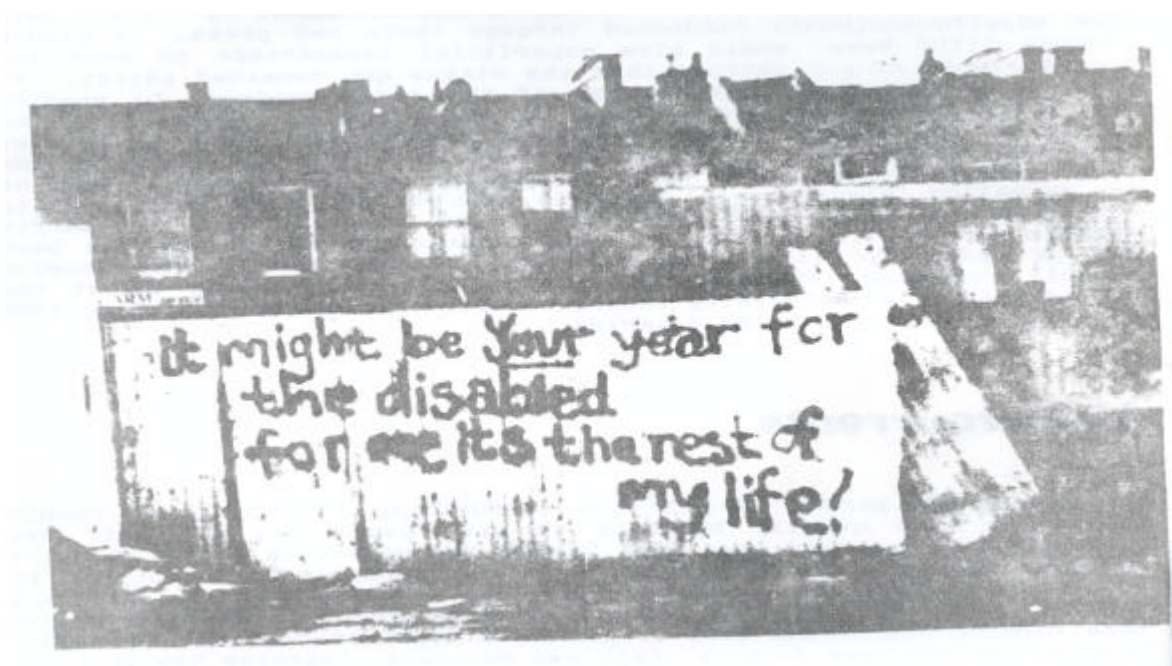 ARM
it might be Your year for
the disabled
for me its the rest of
my life!